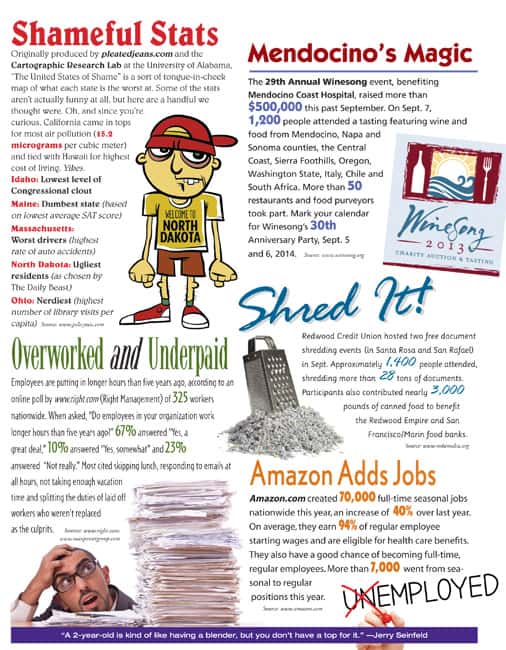 Shameful Stats
Originally produced by pleatedjeans.com and the
Cartographic Research Lab at the University of Alabama,
"The United States of Shame" is a sort of tongue-in-cheek
map of what each state is the worst at. Some of the stats
aren't actually funny at all, but here are a handful we
thought were. Oh, and since you're
curious, California came in tops
for most air pollution (15.2
micrograms per cubic meter)
and tied with Hawaii for highest
cost of living. Yikes.
Idaho: Lowest level of
Congressional clout
Maine: Dumbest state (based
on lowest average SAT score)
Massachusetts:
Worst drivers (highest
rate of auto accidents)
North Dakota: Ugliest
residents (as chosen by
The Daily Beast)
Ohio: Nerdiest (highest
number of library visits per
capita) Source: www.policymic.com
WELCOME TO
NORTH
DAKOTA
Mendocino's Magic
The 29th Annual Winesong event, benefiting
Mendocino Coast Hospital, raised more than
$500,000 this past September. On Sept. 7,
1,200 people attended a tasting featuring wine and
food from Mendocino, Napa and
Sonoma counties, the Central
Coast, Sierra Foothills, Oregon,
Washington State, Italy, Chile and
South Africa. More than 50
restaurants and food purveyors
took part. Mark your calendar
for Winesong's 30th
Anniversary Party, Sept. 5
and 6, 2014. Source: www.winesong.org
WineSong
2013
CHARITY AUCTION & TASTING
Shred It!
Redwood Credit Union hosted two free document
shredding events (in Santa Rosa and San Rafael)
in Sept. Approximately 1,400 people attended,
shredding more than 28 tons of documents.
Participants also contributed nearly 3,000
pounds of canned food to benefit
the Redwood Empire and San
Francisco/Marin food banks.
Overworked and Underpaid
Employees are putting in longer hours than five years ago, according to an
online poll by www.right.com (Right Management) of 325 workers
nationwide. When asked, "Do employees in your organization work
longer hours than five years ago?" 67% answered "Yes, a
great deal," 10% answered "Yes, somewhat" and 23%
answered "Not really." Most cited skipping lunch, responding to emails at
all hours, not taking enough vacation
time and splitting the duties of laid off
workers who weren't replaced
as the culprits. Source: www.right.com
Amazon Adds Jobs
Amazon.com created 70,000 full-time seasonal jobs
nationwide this year, an increase of 40% over last year.
On average, they earn 94% of regular employee
starting wages and are eligible for health care benefits.
They also have a good chance of becoming full-time,
regular employees. More than 7,000 went from sea-
sonal to regular
positions this year.
Source: www.amazon.com
UNEMPLOYED
"A 2-year-old is kind of like having a blender, but you don't have a top for it." —Jerry Seinfeld